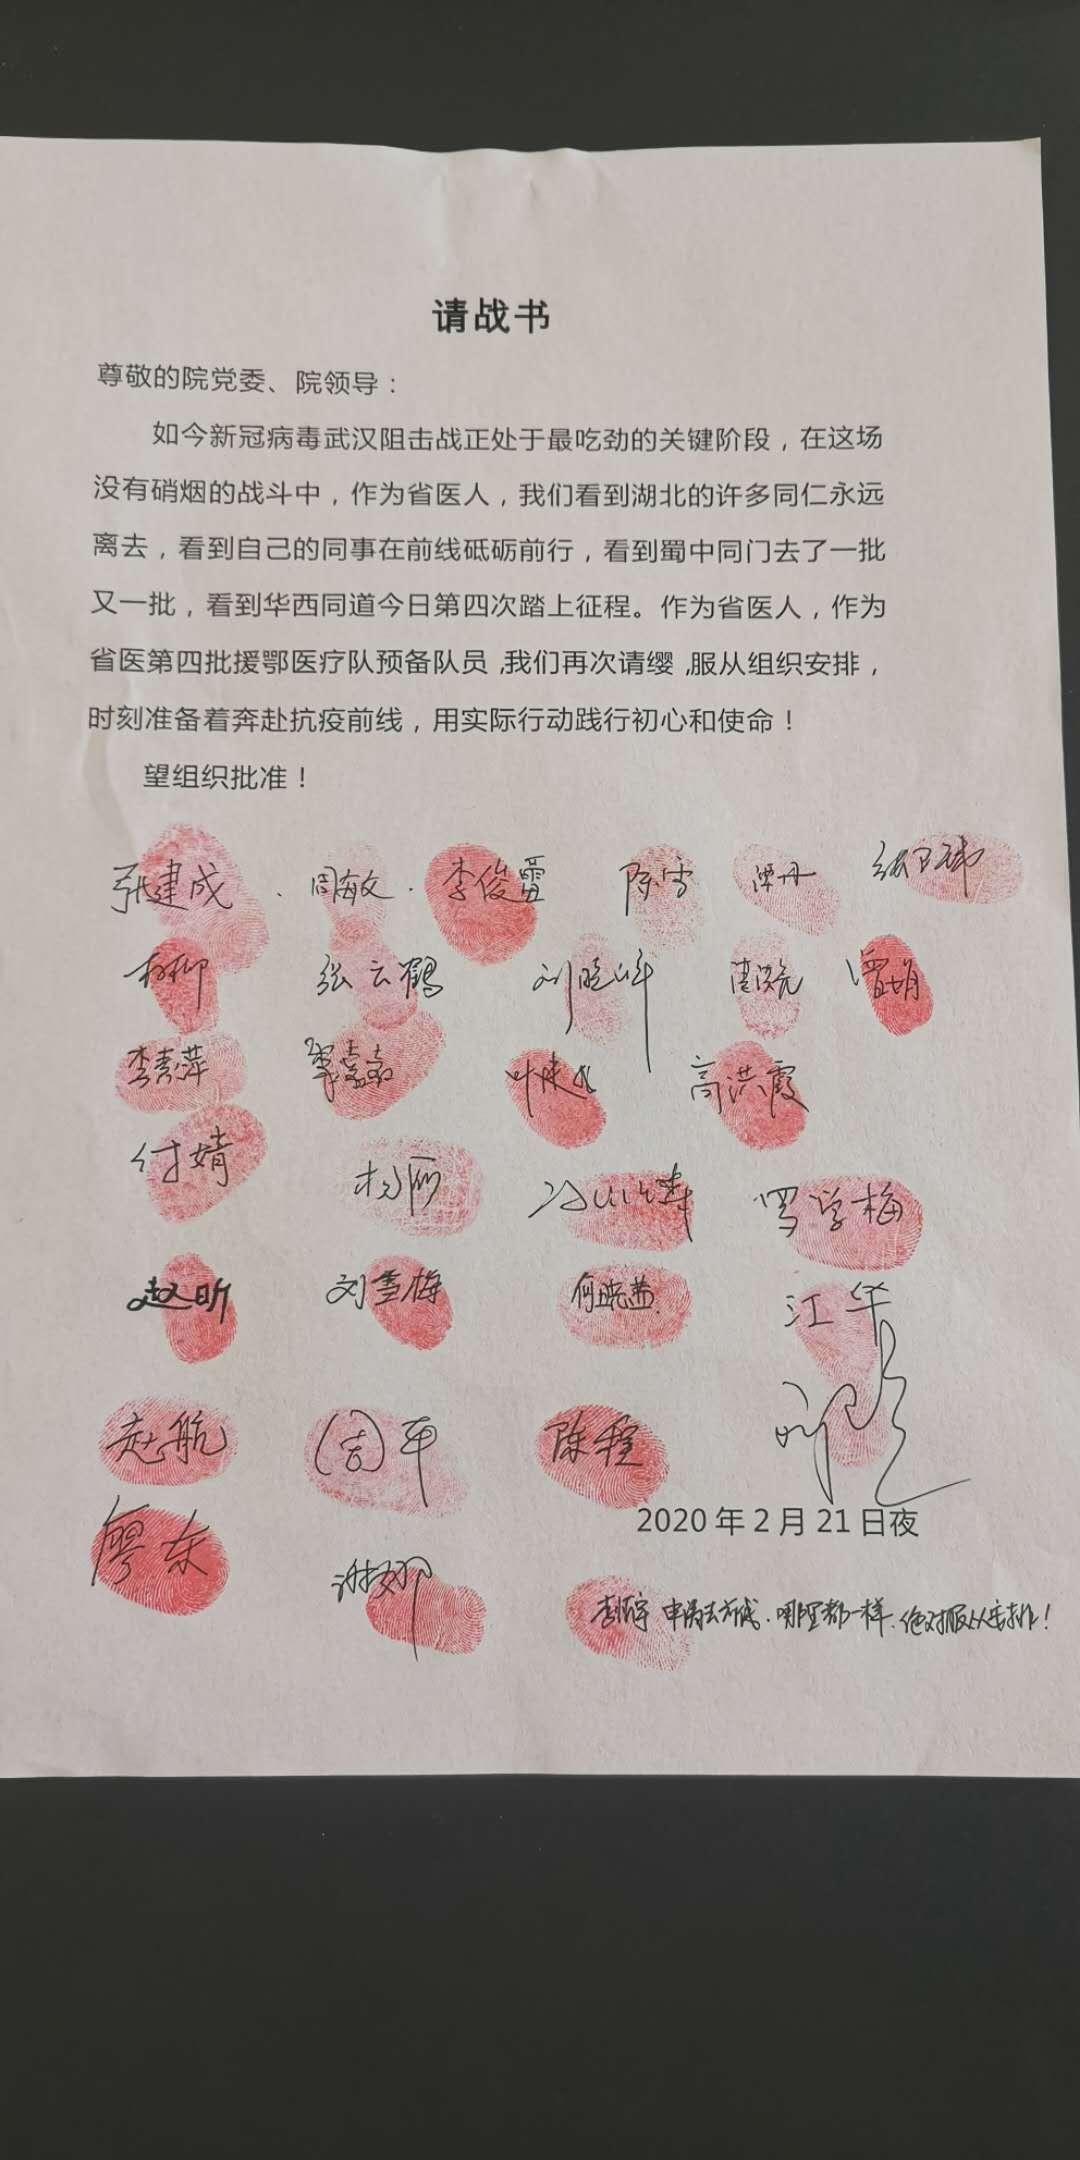 请战书
尊敬的院党委、院领导：
如今新冠病毒武汉阻击战正处于最吃劲的关键阶段，在这场
没有硝烟的战斗中，作为省医人，我们看到湖北的许多同仁永远
离去，看到自己的同事在前线砥砺前行，看到蜀中同门去了一批
又一批，看到华西同道今日第四次踏上征程。作为省医人，作为
省医第四批援鄂医疗队预备队员，我们再次请缨，服从组织安排，
时刻准备着奔赴抗疫前线，用实际行动践行初心和使命！
望组织批准！
张建成 周敏 李俊 陈雪
张云鹤 刘晓 曾娟
李青萍 高洪霞
付婧 杨丽 罗学梅
赵昕 刘雪梅 何晓 江华
赵航 周平 陈程
2020年2月21日夜
廖东
哪里都一样，绝对服从安排！